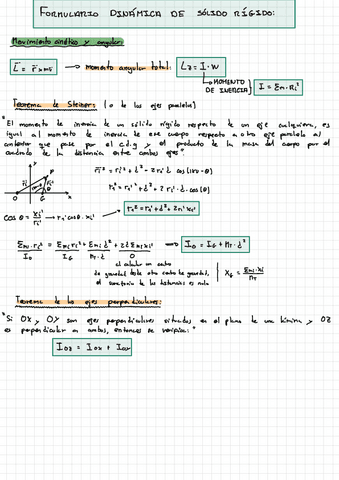 FORMULARIO DINÁMICA DE SÓLIDO RÍGIDO:
Movimiento cinético y angular:
L = r x mv → momento angular total: L_z = I · W
→ MOMENTO DE INERCIA
I = Σm · R_i²
Teorema de Steiner: (o de los ejes paralelos)
"El momento de inercia de un sólido rígido respecto de un eje cualquiera, es
igual al momento de inercia de ese cuerpo respecto a otro eje paralelo al
anterior que pase por el c.d.g y el producto de la masa del cuerpo por el
cuadrado de la distancia entre ambos ejes"
cos θ =
Σm_i · r_i²
I_0
I_G
0
I_0 = I_G + M_T · d²
al calcular un centro
de gravedad desde otro centro de gravedad,
el sumatorio de las distancias es nulo
Teorema de los ejes perpendiculares:
"Si OX y OY son ejes perpendiculares situados en el plano de una lámina y OZ
es perpendicular a ambos, entonces se verifica:"
I_OZ = I_OX + I_OY